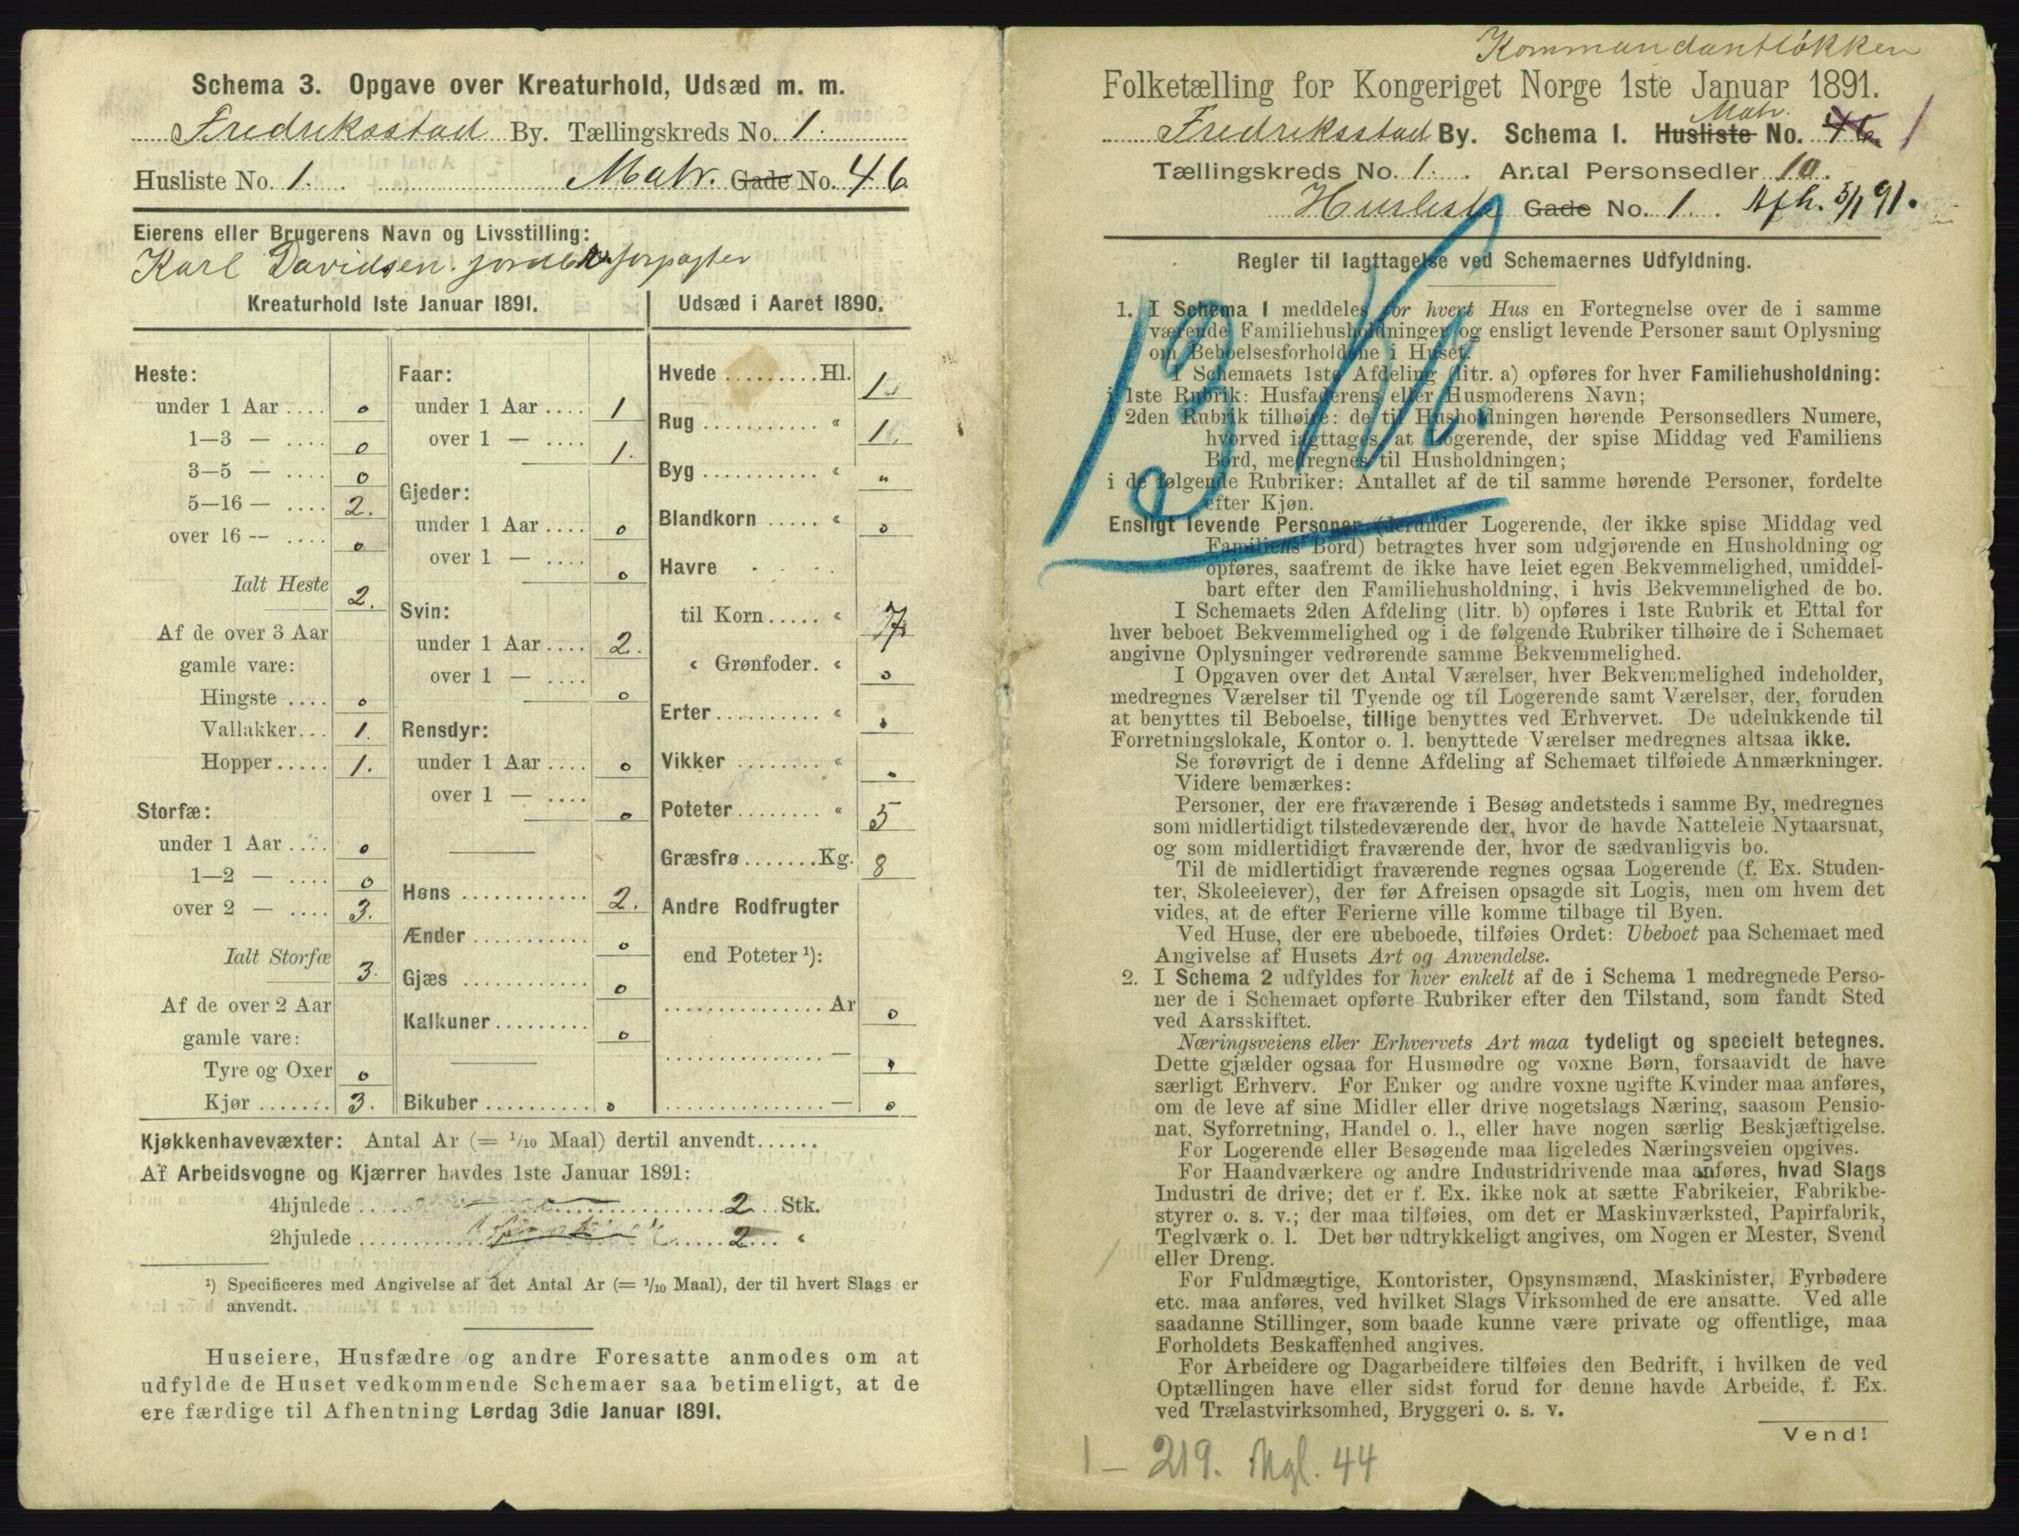 Schema 3. Opgave over Kreaturhold, Udsæd m. m.
Fredriksstad By. Tællingskreds No. 1.
Husliste No. 1. Matr. Gade No. 46
Eierens eller Brugerens Navn og Livsstilling:
Karl Davidsen. forpagter
Kreaturhold 1ste Januar 1891.
Heste:
under 1 Aar .... 0
1—3 — .... 0
3—5 — .... 0
5—16 — .... 2.
over 16 — .... 0
Ialt Heste 2.
Af de over 3 Aar
gamle vare:
Hingste .... 0
Vallakker... 1.
Hopper..... 1.
Storfæ:
under 1 Aar .... 0
1—2 — .... 0
over 2 — .... 3.
Ialt Storfæ 3.
Af de over 2 Aar
gamle vare:
Tyre og Oxer 0
Kjør ....... 3.
Faar:
under 1 Aar .... 1
over 1 — .... 1.
Gjeder:
under 1 Aar .... 0
over 1 — .... 0
Svin:
under 1 Aar .... 2.
over 1 — .... 0
Rensdyr:
under 1 Aar .... 0
over 1 — .... 0
Høns ............ 2.
Ænder ........... 0
Gjæs ............ 0
Kalkuner......... 0
Bikuber .......... 0
Udsæd i Aaret 1890.
Hvede .........Hl. 1
Rug ........... " 1.
Byg ........... " "
Blandkorn ..... " 0
Havre
til Korn..... " 7
" Grønfoder. " 0
Erter.......... " 0
Vikker ........ " 0
Poteter........ " 5
Græsfrø.......Kg. 8
Andre Rodfrugter
end Poteter ¹):
............... Ar 0
............... — 0
............... — 0
Kjøkkenhavevæxter: Antal Ar (= 1/10 Maal) dertil anvendt......
Af Arbeidsvogne og Kjærrer havdes 1ste Januar 1891:
4hjulede ........ 2 Stk.
2hjulede ........ 2 "
¹) Specificeres med Angivelse af det Antal Ar (= 1/10 Maal), der til hvert Slags er
anvendt.
Huseiere, Husfædre og andre Foresatte anmodes om at
udfylde de Huset vedkommende Schemaer saa betimeligt, at de
ere færdige til Afhentning Lørdag 3die Januar 1891.
Kommandantløkken
Folketælling for Kongeriget Norge 1ste Januar 1891.
Matr.
Fredriksstad By. Schema 1. Husliste No. 46. 1
Tællingskreds No. 1. Antal Personsedler 10.
Husliste Gade No. 1. Afh. 5/1 91.
Regler til Iagttagelse ved Schemaernes Udfyldning.
1. I Schema 1 meddeles for hvert Hus en Fortegnelse over de i samme
værende Familiehusholdninger og ensligt levende Personer samt Oplysning
om Beboelsesforholdene i Huset.
I Schemaets 1ste Afdeling (litr. a) opføres for hver Familiehusholdning:
i 1ste Rubrik: Husfaderens eller Husmoderens Navn;
i 2den Rubrik tilhøire: de til Husholdningen hørende Personsedlers Numere,
hvorved iagttages, at Logerende, der spise Middag ved Familiens
Bord, medregnes til Husholdningen;
i de følgende Rubriker: Antallet af de til samme hørende Personer, fordelte
efter Kjøn.
Ensligt levende Personer (derunder Logerende, der ikke spise Middag ved
Familiens Bord) betragtes hver som udgjørende en Husholdning og
opføres, saafremt de ikke have leiet egen Bekvemmelighed, umiddel-
bart efter den Familiehusholdning, i hvis Bekvemmelighed de bo.
I Schemaets 2den Afdeling (litr. b) opføres i 1ste Rubrik et Ettal for
hver beboet Bekvemmelighed og i de følgende Rubriker tilhøire de i Schemaet
angivne Oplysninger vedrørende samme Bekvemmelighed.
I Opgaven over det Antal Værelser, hver Bekvemmelighed indeholder,
medregnes Værelser til Tyende og til Logerende samt Værelser, der, foruden
at benyttes til Beboelse, tillige benyttes ved Erhvervet. De udelukkende til
Forretningslokale, Kontor o. l. benyttede Værelser medregnes altsaa ikke.
Se forøvrigt de i denne Afdeling af Schemaet tilføiede Anmærkninger.
Videre bemærkes:
Personer, der ere fraværende i Besøg andetsteds i samme By, medregnes
som midlertidigt tilstedeværende der, hvor de havde Natteleie Nytaarsnat,
og som midlertidigt fraværende der, hvor de sædvanligvis bo.
Til de midlertidigt fraværende regnes ogsaa Logerende (f. Ex. Studen-
ter, Skoleelever), der før Afreisen opsagde sit Logis, men om hvem det
vides, at de efter Ferierne ville komme tilbage til Byen.
Ved Huse, der ere ubeboede, tilføies Ordet: Ubeboet paa Schemaet med
Angivelse af Husets Art og Anvendelse.
2. I Schema 2 udfyldes for hver enkelt af de i Schema 1 medregnede Perso-
ner de i Schemaet opførte Rubriker efter den Tilstand, som fandt Sted
ved Aarsskiftet.
Næringsveiens eller Erhvervets Art maa tydeligt og specielt betegnes.
Dette gjælder ogsaa for Husmødre og voxne Børn, forsaavidt de have
særligt Erhverv. For Enker og andre voxne ugifte Kvinder maa anføres,
om de leve af sine Midler eller drive nogetslags Næring, saasom Pensio-
nat, Syforretning, Handel o. l., eller have nogen særlig Beskjæftigelse.
For Logerende eller Besøgende maa ligeledes Næringsveien opgives.
For Haandværkere og andre Industridrivende maa anføres, hvad Slags
Industri de drive; det er f. Ex. ikke nok at sætte Fabrikeier, Fabrikbe-
styrer o. s. v.; der maa tilføies, om det er Maskinværksted, Papirfabrik,
Teglværk o. l. Det bør udtrykkeligt angives, om Nogen er Mester, Svend
eller Dreng.
For Fuldmægtige, Kontorister, Opsynsmænd, Maskinister, Fyrbødere
etc. maa anføres, ved hvilket Slags Virksomhed de ere ansatte. Ved alle
saadanne Stillinger, som baade kunne være private og offentlige, maa
Forholdets Beskaffenhed angives.
For Arbeidere og Dagarbeidere tilføies den Bedrift, i hvilken de ved
Optællingen have eller sidst forud for denne havde Arbeide, f. Ex.
ved Trælastvirksomhed, Bryggeri o. s. v.
Vend!
1 — 219. Mgl. 44